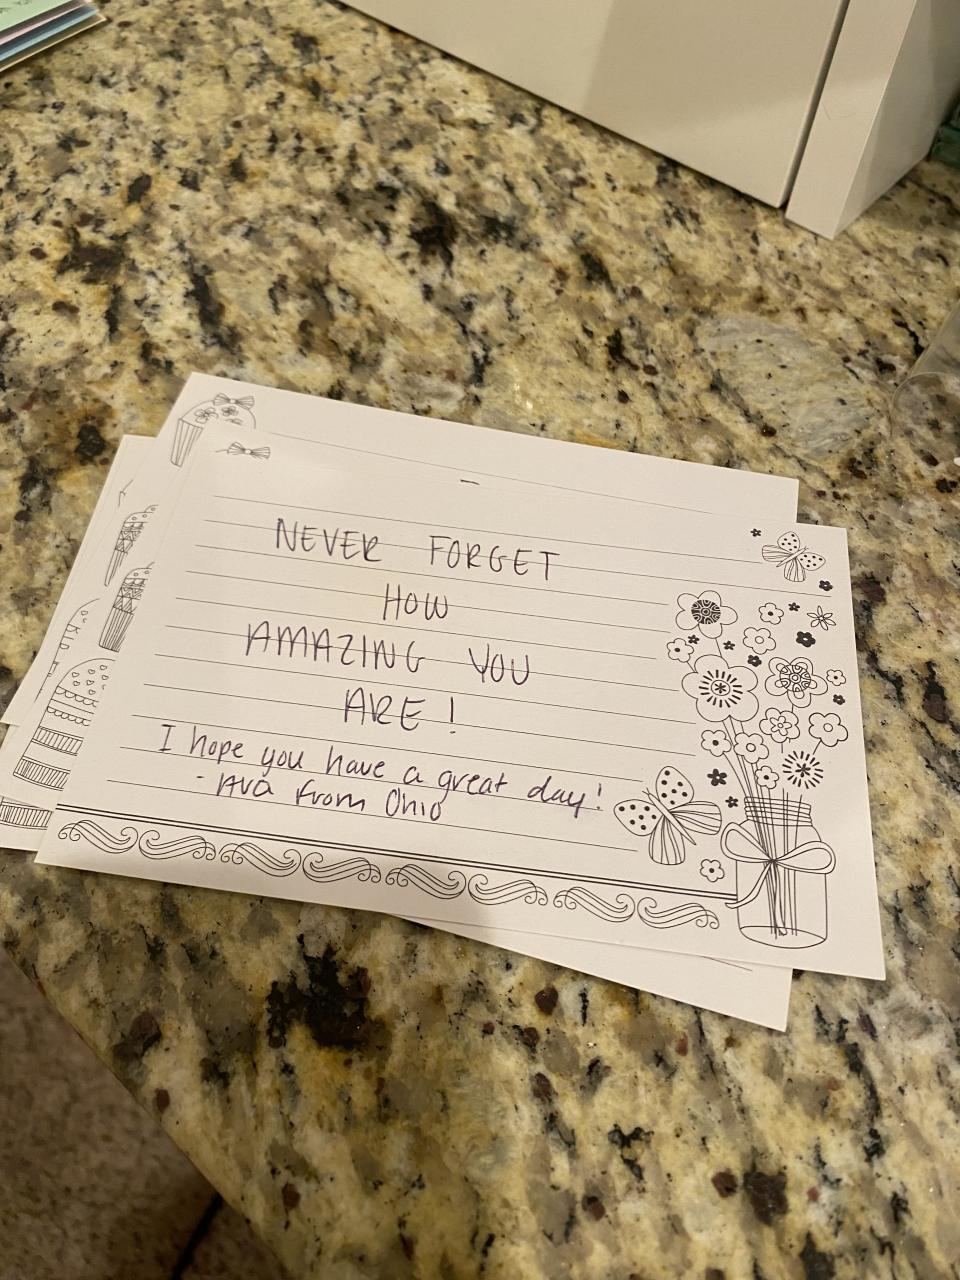 NEVER FORGET
HOW
AMAZING YOU
ARE!
I hope you have a great day!
- Ava from Ohio